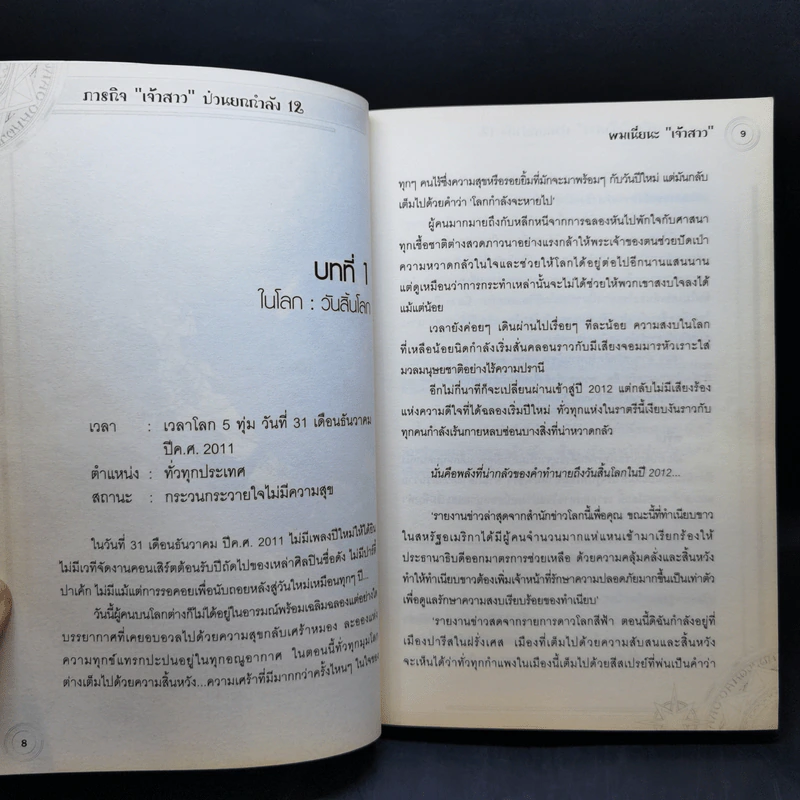 ภารกิจ "เจ้าสาว" ป่วนยกกำลัง 12
บทที่ 1
ในโลก : วันสิ้นโลก
เวลา : เวลาโลก 5 ทุ่ม วันที่ 31 เดือนธันวาคม
ปีค.ศ. 2011
ตำแหน่ง : ทั่วทุกประเทศ
สถานะ : กระวนกระวายใจไม่มีความสุข
ในวันที่ 31 เดือนธันวาคม ปีค.ศ. 2011 ไม่มีเพลงปีใหม่ให้ได้ยิน
ไม่มีเวทีจัดงานคอนเสิร์ตต้อนรับปีถัดไปของเหล่าศิลปินชื่อดัง ไม่มีปาร์ตี้
ปาเค้ก ไม่มีแม้แต่การรอคอยเพื่อนับถอยหลังสู่วันใหม่เหมือนทุกๆ ปี...
วันนี้ผู้คนบนโลกต่างก็ไม่ได้อยู่ในอารมณ์พร้อมเฉลิมฉลองแต่อย่างใด
บรรยากาศที่เคยอบอวลไปด้วยความสุขกลับเศร้าหมอง ละอองแห่ง
ความทุกข์แทรกปะปนอยู่ในทุกอณูอากาศ ในตอนนี้ทั่วทุกมุมโลก
ต่างเต็มไปด้วยความสิ้นหวัง...ความเศร้าที่มีมากกว่าครั้งไหนๆ ในใจของ
8
พมเนี่ยนะ "เจ้าสาว"
9
ทุกๆ คนไร้ซึ่งความสุขหรือรอยยิ้มที่มักจะมาพร้อมๆ กับวันปีใหม่ แต่มันกลับ
เต็มไปด้วยคำว่า 'โลกกำลังจะหายไป'
ผู้คนมากมายถึงกับหลีกหนีจากการฉลองหันไปพักใจกับศาสนา
ทุกเชื้อชาติต่างสวดภาวนาอย่างแรงกล้าให้พระเจ้าของตนช่วยปัดเป่า
ความหวาดกลัวในใจและช่วยให้โลกได้อยู่ต่อไปอีกนานแสนนาน
แต่ดูเหมือนว่าการกระทำเหล่านั้นจะไม่ได้ช่วยให้พวกเขาสงบใจลงได้
แม้แต่น้อย
เวลายังค่อยๆ เดินผ่านไปเรื่อยๆ ทีละน้อย ความสงบในโลก
ที่เหลือน้อยนิดกำลังเริ่มสั่นคลอนราวกับมีเสียงจอมมารหัวเราะใส่
มวลมนุษยชาติอย่างไร้ความปรานี
อีกไม่กี่นาทีก็จะเปลี่ยนผ่านเข้าสู่ปี 2012 แต่กลับไม่มีเสียงร้อง
แห่งความดีใจที่ได้ฉลองเริ่มปีใหม่ ทั่วทุกแห่งในราตรีนี้เงียบงันราวกับ
ทุกคนกำลังเร้นกายหลบซ่อนบางสิ่งที่น่าหวาดกลัว
นั่นคือพลังที่น่ากลัวของคำทำนายถึงวันสิ้นโลกในปี 2012...
'รายงานข่าวล่าสุดจากสำนักข่าวโลกนี้เพื่อคุณ ขณะนี้ที่ทำเนียบขาว
ในสหรัฐอเมริกาได้มีผู้คนจำนวนมากแห่แหนเข้ามาเรียกร้องให้
ประธานาธิบดีออกมาตรการช่วยเหลือ ด้วยความคลุ้มคลั่งและสิ้นหวัง
ทำให้ทำเนียบขาวต้องเพิ่มเจ้าหน้าที่รักษาความปลอดภัยมากขึ้นเป็นเท่าตัว
เพื่อดูแลรักษาความสงบเรียบร้อยของทำเนียบ'
'รายงานข่าวสดจากรายการดาวโลกสีฟ้า ตอนนี้ดิฉันกำลังอยู่ที่
เมืองปารีสในฝรั่งเศส เมืองที่เต็มไปด้วยความสับสนและสิ้นหวัง
จะเห็นได้ว่าทั่วทุกกำแพงในเมืองนี้เต็มไปด้วยสีสเปรย์ที่พ่นเป็นคำว่า